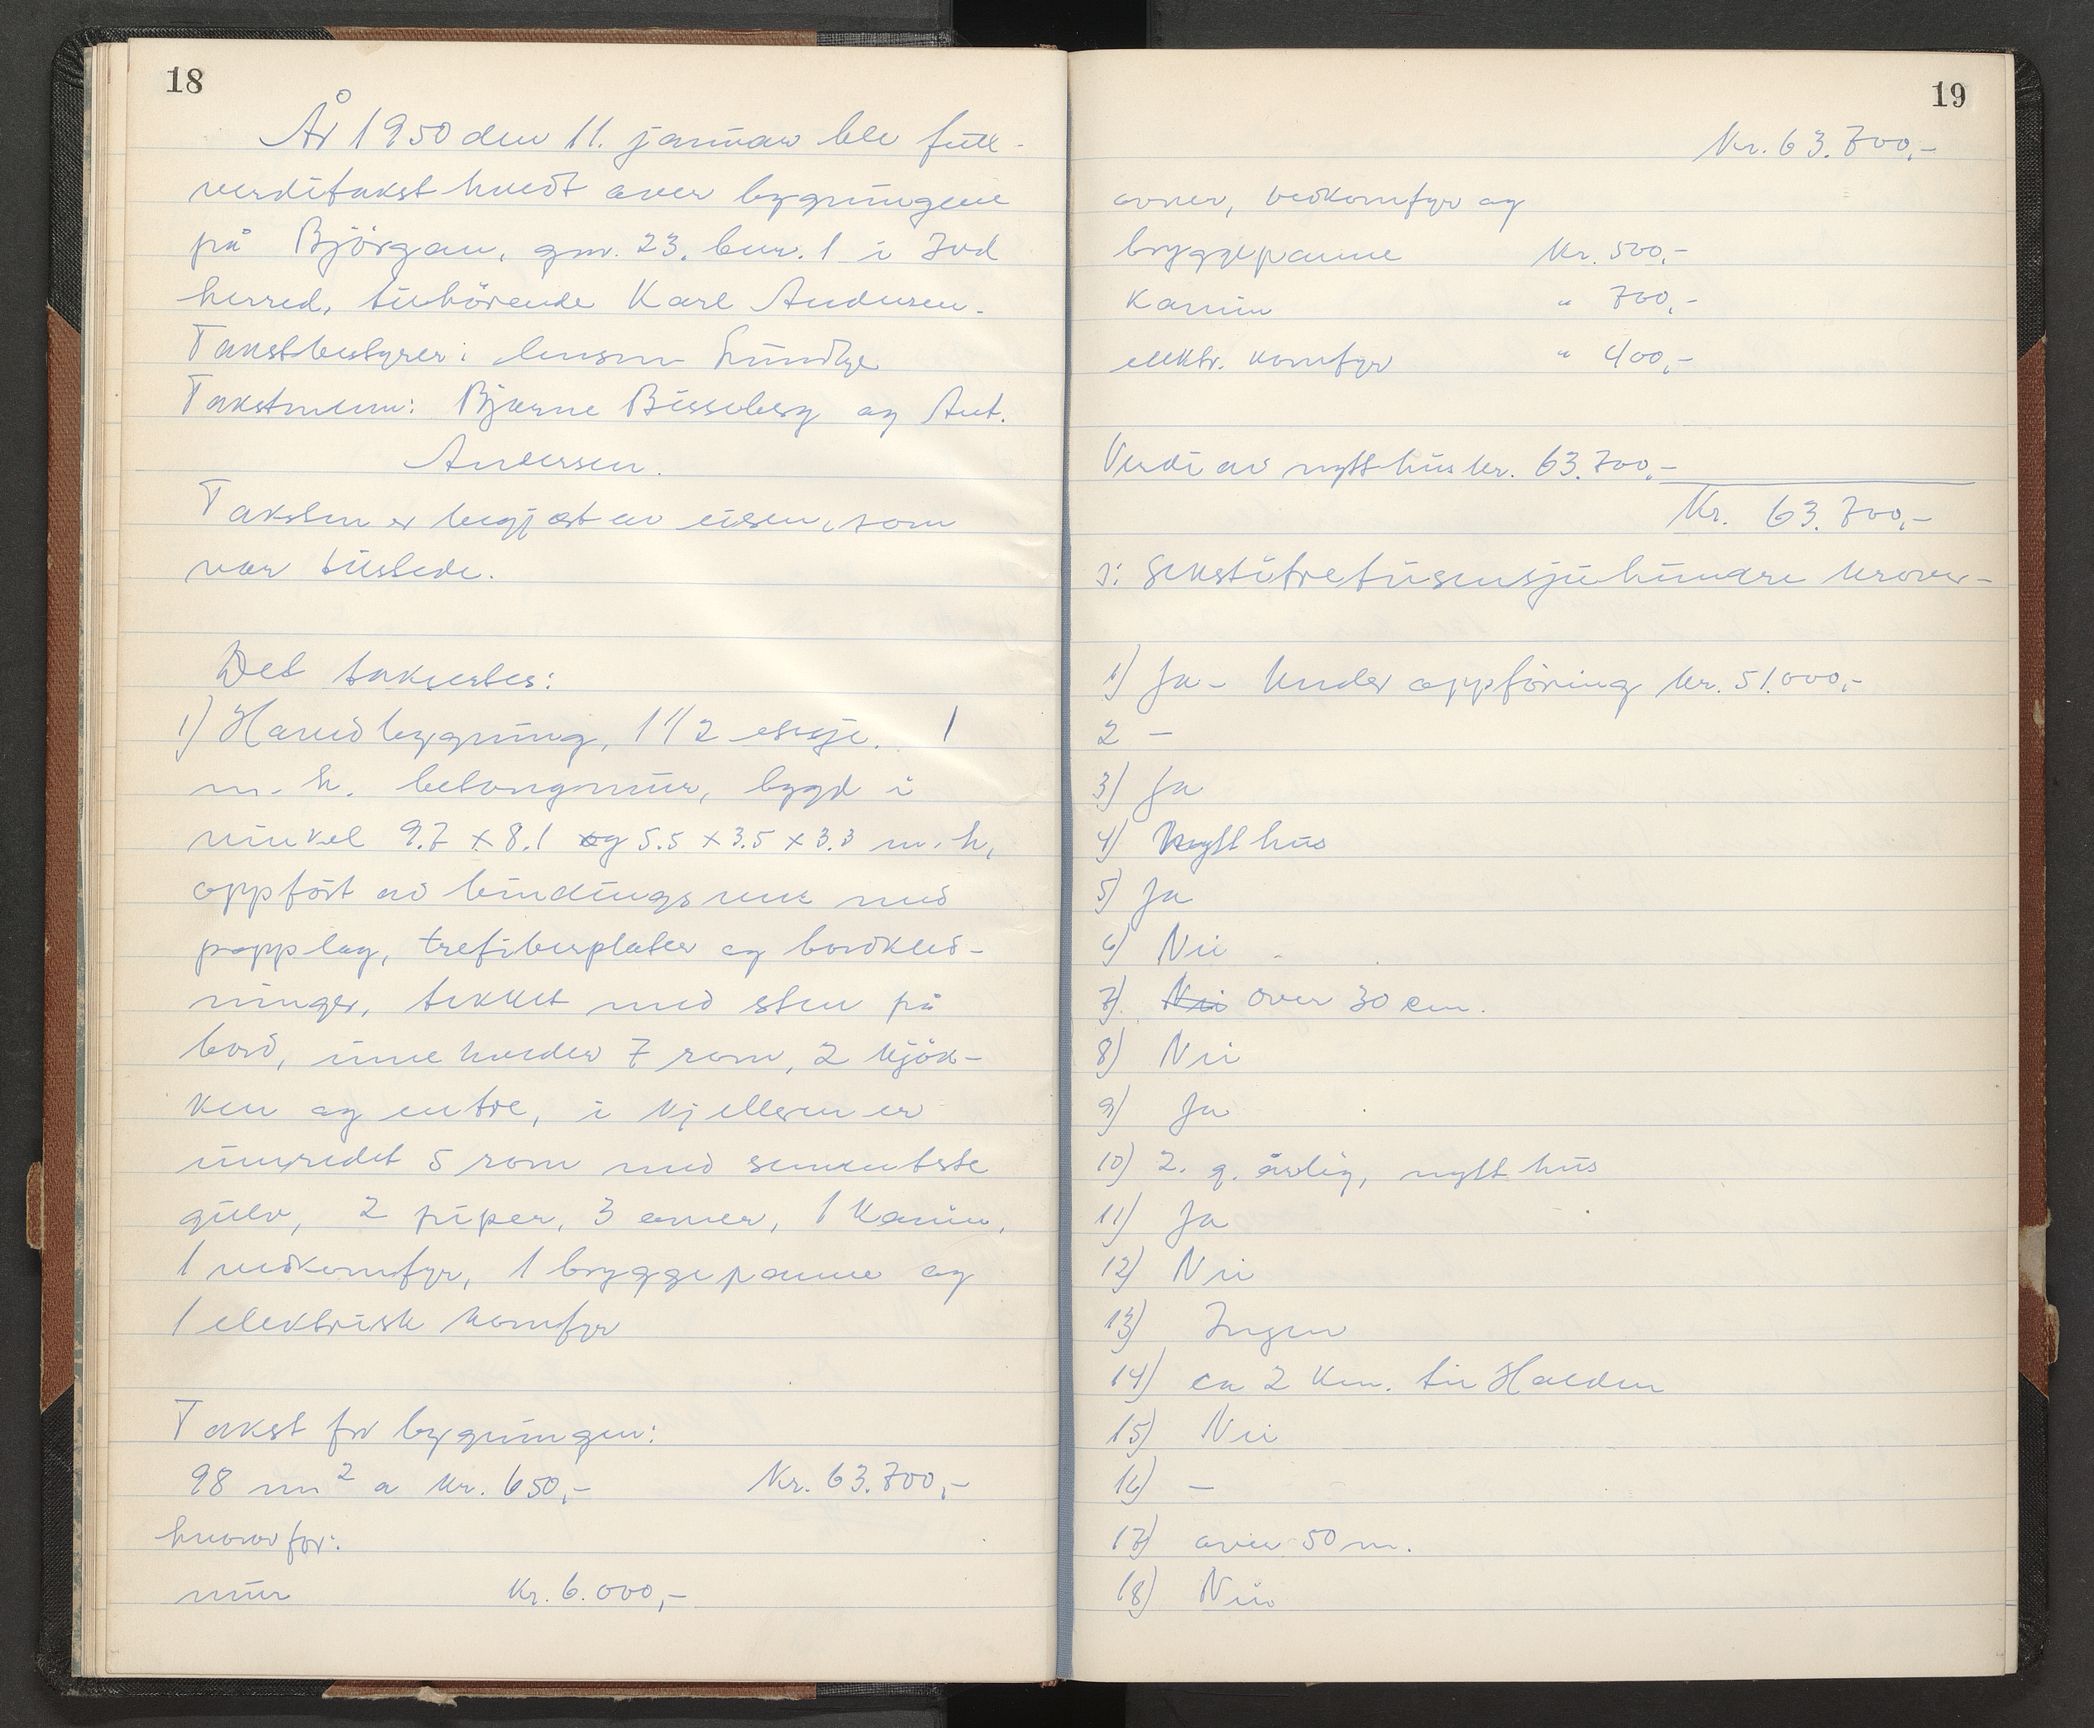 18
År 1950 den 11. januar ble full-
verditakst holdt over bygningene
på Björgan, gnr. 23. bnr. 1 i Idd
herred, tilhörende Karl Andersen.
Takstbestyrer: lensm Lundby
Takstmenn: Bjarne Bisseberg og Ant.
Andersen.
Taksten er begjært av eieren, som
var tilstede.
Det takserles:
1) Hovedbygning, 1 1/2 etasje. 1
m. h. betongmur, bygd i
vinkel 9.7 x 8.1 og 5.5 x 3.5 x 3.3 m. h,
oppfört av bindingsverk med
papplag, trefiberplater og bordkled-
ninger, tekket med sten på
bord, inneholder 7 rom, 2 kjök-
ken og entre, i kjelleren er
innredet 5 rom med sementste
gulv, 2 piper, 3 ovner, 1 kamin,
1 vedkomfyr, 1 bryggepanne og
1 elektrisk komfyr
Takst for bygningen:
98 m2 a kr. 650,- Kr. 63.700,-
hvorav for:
mur Kr. 6.000,-
19
Kr. 63.700,-
ovner, vedkomfyr og
bryggepanne Kr. 500,-
Kamin " 700,-
elektr. komfyr " 400,-
Verdi av nytt hus kr. 63.700,-
Kr. 63.700,-
ɔ: Sekstitretusensjuhundre kroner-
1) Ja - Under oppföring kr. 51.000,-
2 -
3) Ja
4) Nytt hus
5) Ja
6) Nei
7) Nei over 30 cm.
8) Nei
9) Ja
10) 2. g. årlig, nytt hus
11) Ja
12) Nei
13) Ingen
14) ca 2 km. til Halden
15) Nei
16) -
17) over 50 m.
18) Nei